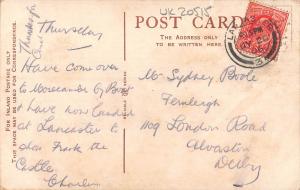 UK20515
POST CARD
THE ADDRESS ONLY
TO BE WRITTEN HERE.
FOR INLAND POSTAGE ONLY THIS
SPACE MAY BE USED FOR CORRESPONDENCE.
Thanks for
Thursday
Have come over
to Morecambe by Boat
have now landed
at Lancaster to
see Frank the
Castle.
Charlie
Mr Sydney Poole
Fernleigh
1109 London Road
Alvaston
Derby